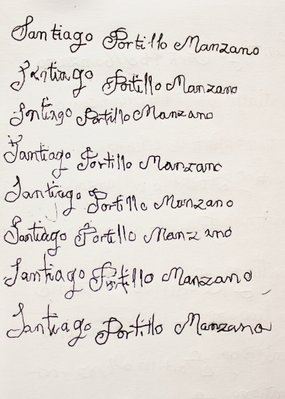 Santiago Portillo Manzano
Santiago Portillo Manzano
Santiago Portillo Manzano
Santiago Portillo Manzano
Santiago Portillo Manzano
Santiago Portillo Manzano
Santiago Portillo Manzano
Santiago Portillo Manzano